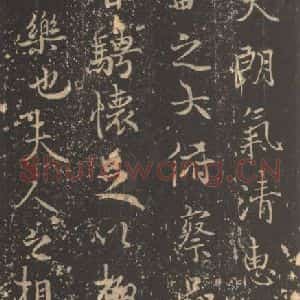 天朗氣清惠
宙之大俯察品
目騁懷足以極
樂也夫人之相
Shufawang.CN